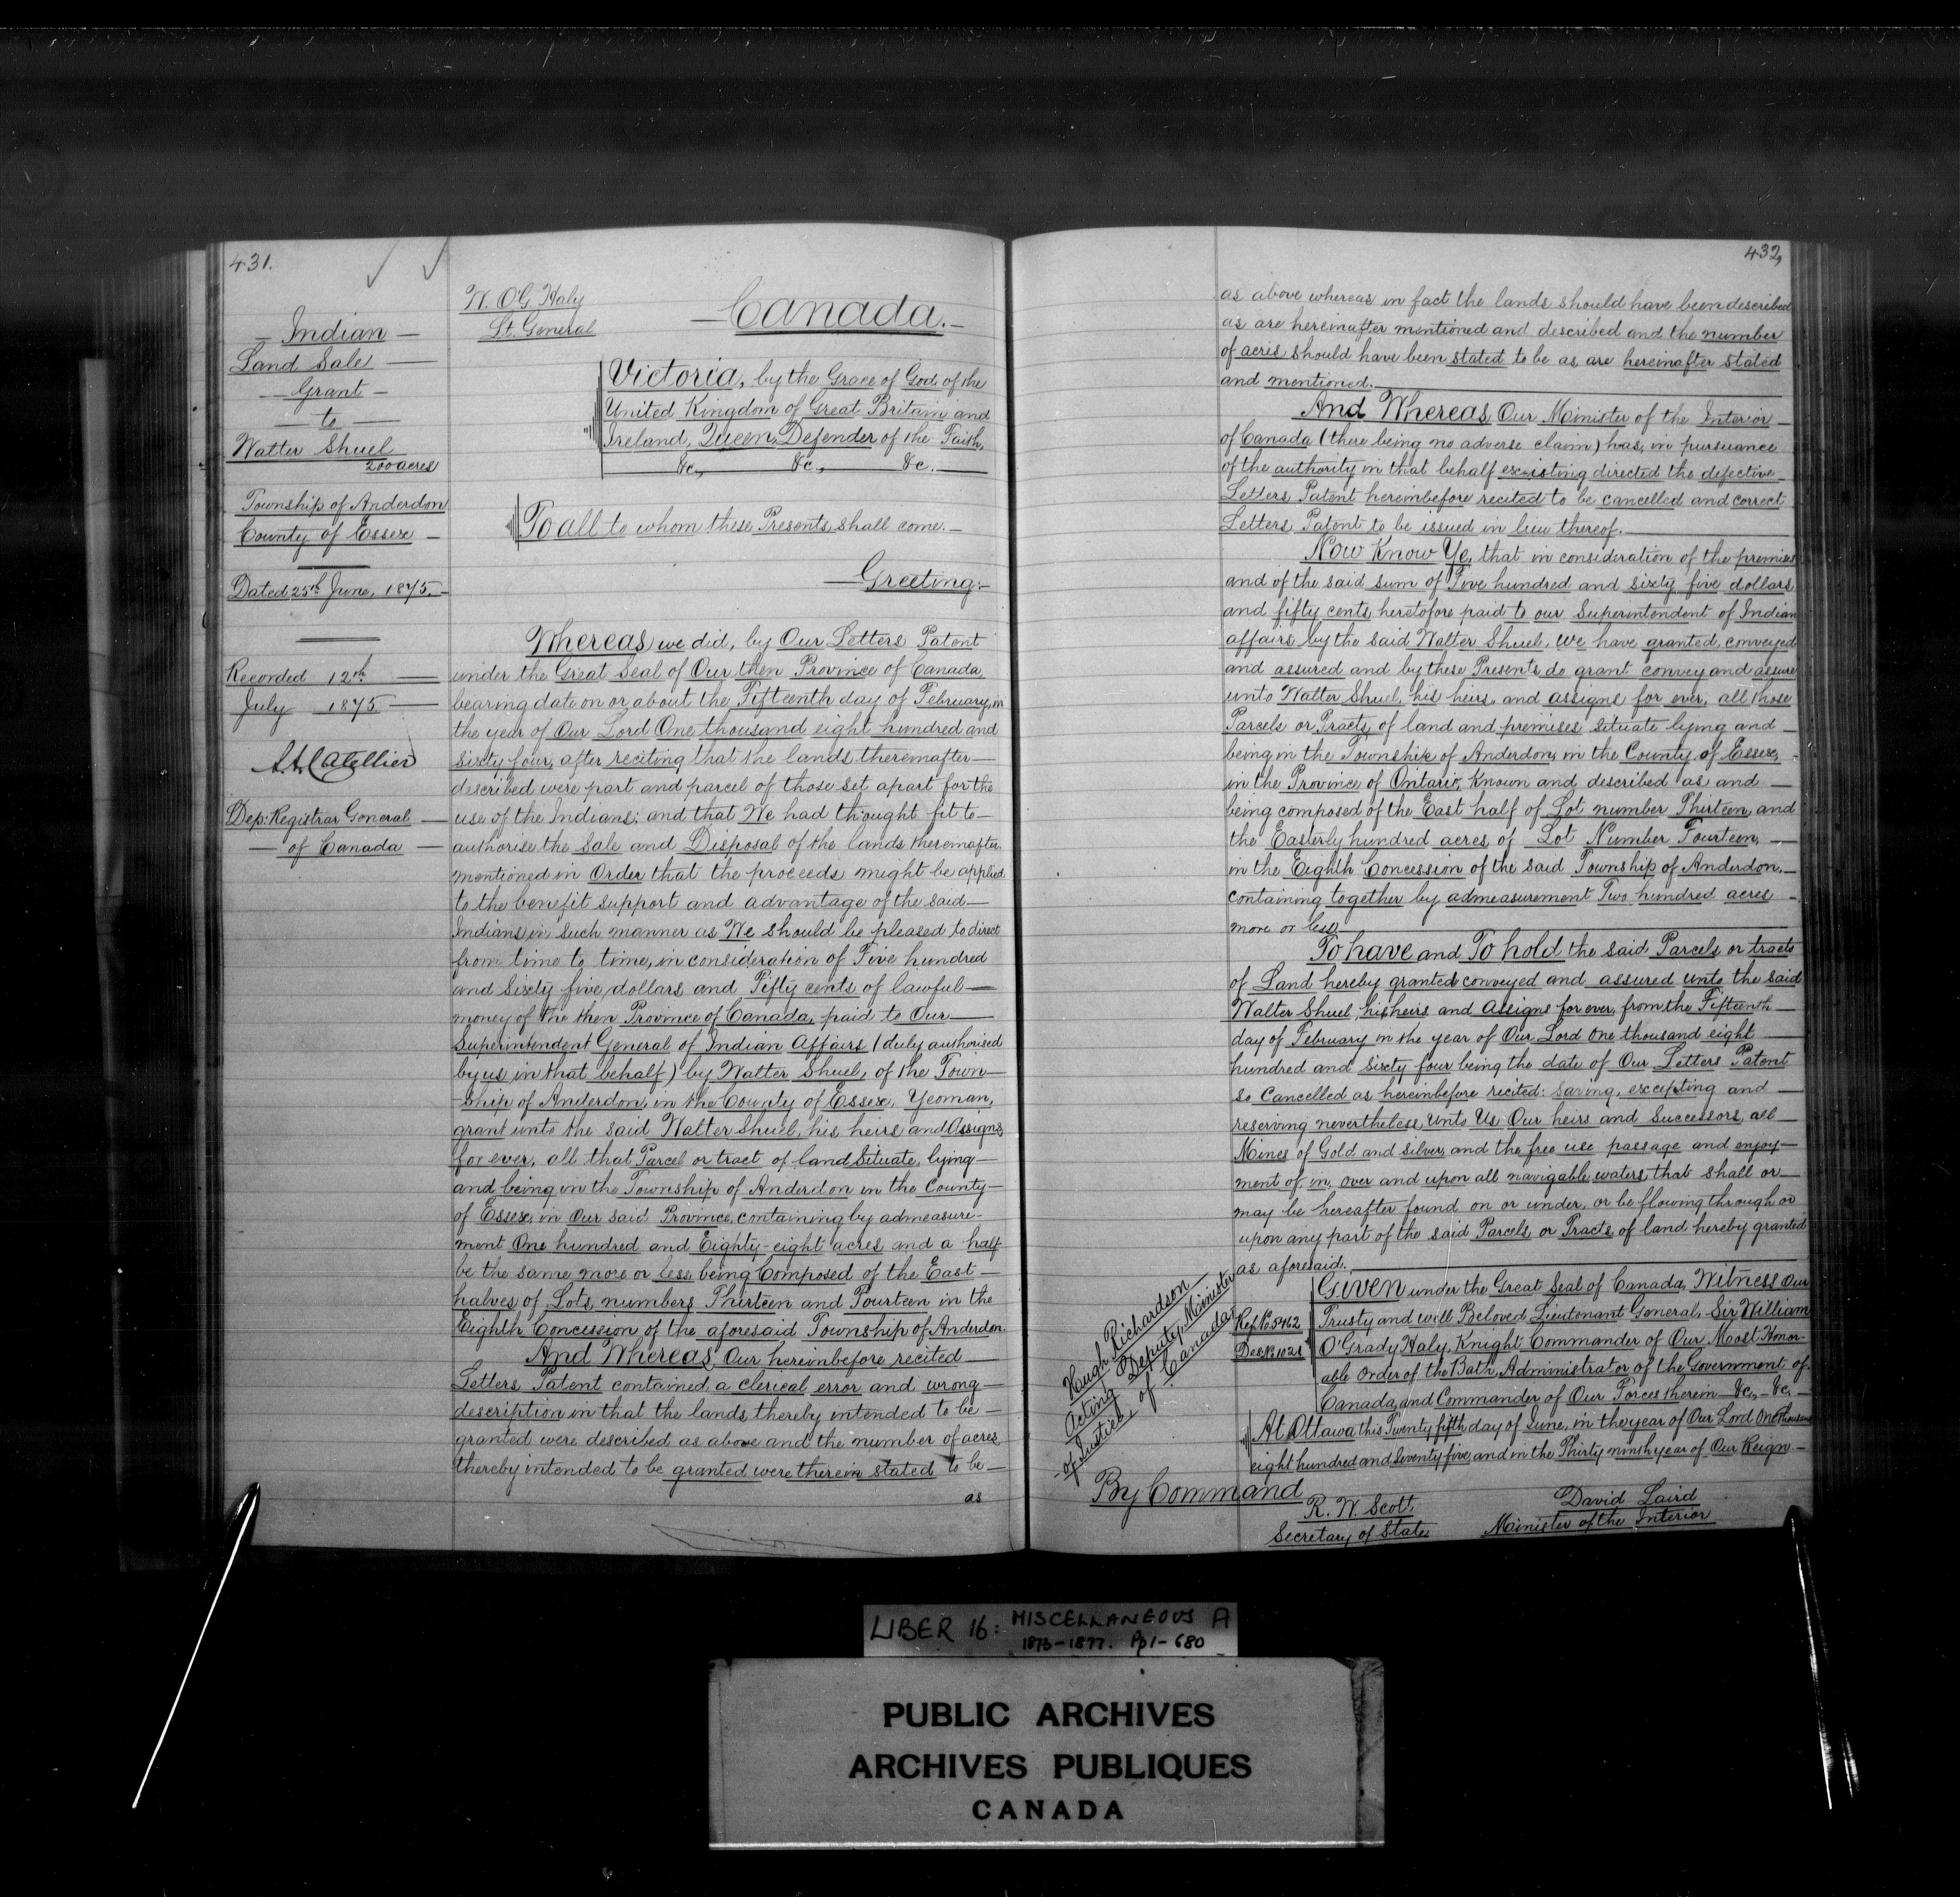 431.
Indian
Land Sale
Grant
to
Walter Shuel
200 acres
Township of Anderdon
County of Essex
Dated 25th June, 1875.
Recorded 12th
July 1875
Dep: Registrar General
of Canada
W. O'G. Haly
Lt. General
Canada.
Victoria, by the Grace of God, of the
United Kingdom of Great Britain and
Ireland, Queen, Defender of the Faith,
&c., &c., &c.
To all to whom these Presents shall come.
Greeting:
Whereas we did, by Our Letters Patent
under the Great Seal of Our then Province of Canada,
bearing date on or about the Fifteenth day of February, in
the year of Our Lord One thousand eight hundred and
sixty four, after reciting that the lands thereinafter
described were part and parcel of those set apart for the
use of the Indians; and that We had thought fit to
authorise the Sale and Disposal of the lands thereinafter
mentioned in Order that the proceeds might be applied
to the benefit support and advantage of the said
Indians in such manner as We should be pleased to direct
from time to time, in consideration of Five hundred
and Sixty five dollars and Fifty cents of lawful
money of the then Province of Canada, paid to Our
Superintendent General of Indian Affairs (duly authorised
by us in that behalf) by Walter Shuel, of the Town-
-ship of Anderdon, in the County of Essex, Yeoman,
grant unto the said Walter Shuel, his heirs and Assigns,
for ever, all that Parcel or tract of land Situate, lying
and being in the Township of Anderdon in the County
of Essex, in Our said Province, containing by admeasure-
ment One hundred and Eighty-eight acres and a half
be the same more or less being Composed of the East
halves of Lots numbers Thirteen and Fourteen in the
Eighth Concession of the aforesaid Township of Anderdon.
And Whereas Our hereinbefore recited
Letters Patent contained a clerical error and wrong
description in that the lands thereby intended to be
granted were described as above and the number of acres
thereby intended to be granted were therein stated to be
as
432,
as above whereas in fact the lands should have been described
as are hereinafter mentioned and described and the number
of acres should have been stated to be as are hereinafter stated
and mentioned.
And Whereas Our Minister of the Interior
of Canada (there being no adverse claim) has, in pursuance
of the authority in that behalf existing directed the defective
Letters Patent hereinbefore recited to be cancelled and correct
Letters Patent to be issued in lieu thereof.
Now Know Ye, that in consideration of the premises
and of the said sum of Five hundred and sixty five dollars
and fifty cents heretofore paid to our Superintendent of Indian
affairs by the said Walter Shuel, we have granted, conveyed
and assured and by these Presents do grant convey and assure
unto Walter Shuel, his heirs and assigns for ever, all those
Parcels or Tracts of land and premises situate lying and
being in the Township of Anderdon, in the County of Essex,
in the Province of Ontario, Known and described as and
being composed of the East half of Lot number Thirteen, and
the Easterly hundred acres of Lot Number Fourteen,
in the Eighth Concession of the said Township of Anderdon,
containing together by admeasurement Two hundred acres
more or less.
To have and To hold the said Parcels or tracts
of Land hereby granted conveyed and assured unto the said
Walter Shuel, his heirs and Assigns for ever, from the Fifteenth
day of February in the year of Our Lord One thousand eight
hundred and Sixty four being the date of Our Letters Patent
so Cancelled as hereinbefore recited: Saving, excepting and
reserving nevertheless, Unto Us Our heirs and Successors, all
Mines of Gold and Silver, and the free use passage and enjoy-
ment of, in, over and upon all navigable waters that shall or
may be hereafter found on or under, or be flowing through or
upon any part of the said Parcels or Tracts of land hereby granted
as aforesaid.
Hugh Richardson
Acting Deputy Minister
of Justice of Canada
Given under the Great Seal of Canada, Witness Our
Trusty and well Beloved, Lieutenant General, Sir William
O'Grady Haly, Knight Commander of Our Most Honor-
able Order of the Bath, Administrator of the Government of
Canada, and Commander of Our Forces therein &c., &c.,
At Ottawa this Twenty fifth day of June, in the year of Our Lord One thousand
eight hundred and Seventy five, and in the Thirty ninth year of Our Reign
By Command
R. W. Scott,
Secretary of State
David Laird
Minister of the Interior
LIBER 16: MISCELLANEOUS A
1873-1877. Pp 1-680
PUBLIC ARCHIVES
ARCHIVES PUBLIQUES
CANADA